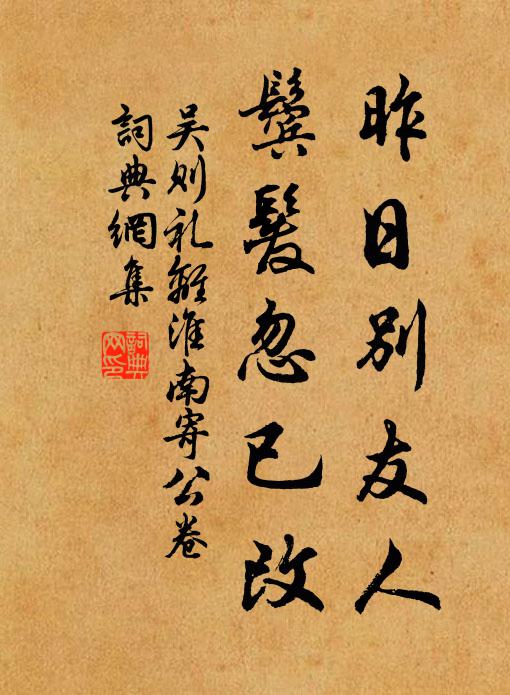 昨日别友人
鬓髮忽已改
吴则礼離淮南寄公卷
詞典網集
詞典
网印